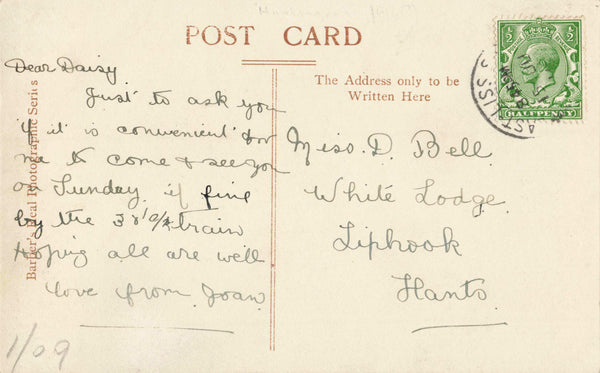 POST CARD
Dear Daisy
Just to ask you
if it is convenient for
me to come & see you
on Sunday if fine
by the train
Hoping all are well
love from Joan
The Address only to be
Written Here
Miss. D. Bell.
White Lodge
Liphook
Hants.
HALFPENNY
Photographic Series
1/09